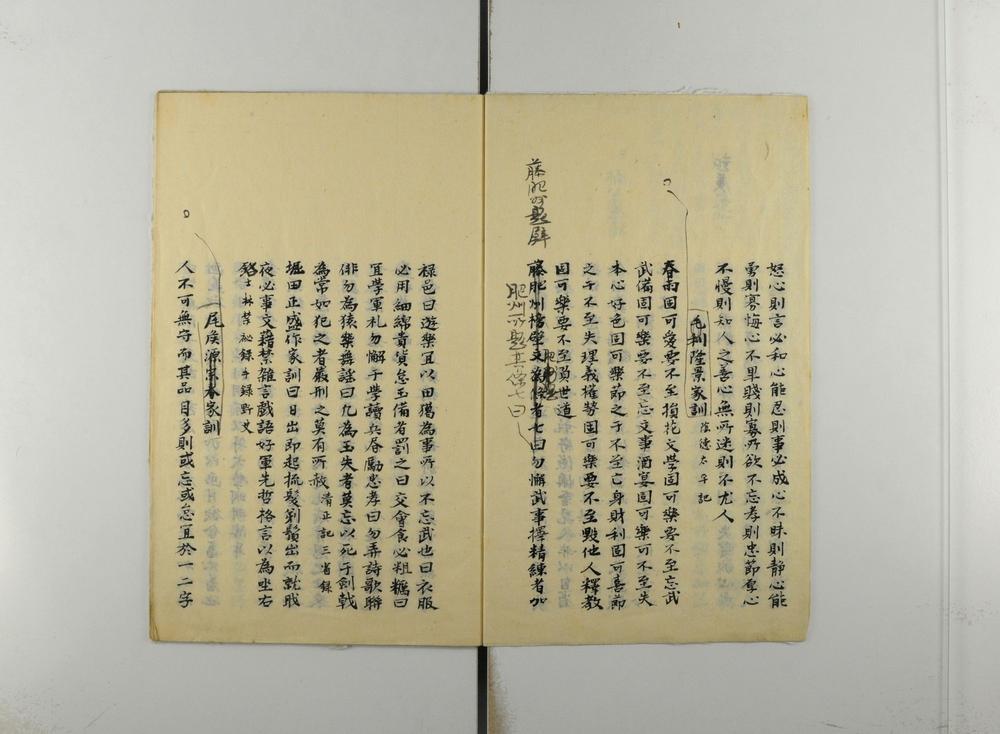 怒心則言必和心能忍則事必成心不昧則静心能
勇則寡悔心不卑賤則寡所欲不忘孝則忠節厚心
不慢則知人之善心無所迷則不尤人
毛利隆景家訓 陰徳太平記
春雨固可愛要不至損花文学固可樂要不至忘武
武備固可樂要不至忘文事酒宴固可樂可不至失
本心好色固可樂節之于不至亡身財利固可善節
之于不至失理義権勢固可樂要不至毀他人釋教
固可樂要不至損世道
藤肥州題壁
肥州所題其條七曰
勿懈武事擇精練者加
禄邑曰遊樂宜以田獦為事所以不忘武也曰衣服
必用細綿責貨怠玉備者罰之曰交會食必粗糲曰
宜學軍礼勿懈于学讀兵眷勵忠孝曰勿弄詩歌聯
俳勿為猿樂舞謡曰凡為士失者莫忘以死于劍戟
為常如犯之者嚴刑之莫有所赦 清正記三省録
堀田正盛作家訓曰日出即起梳髮剃鬚出而就職
夜必事文藉禁雑言戯語好軍先哲格言以為坐右
銘 士林䒳祕録手録野史
尾侯源宗春家訓
人不可無守而其品目多則或忘或怠宜於一二字